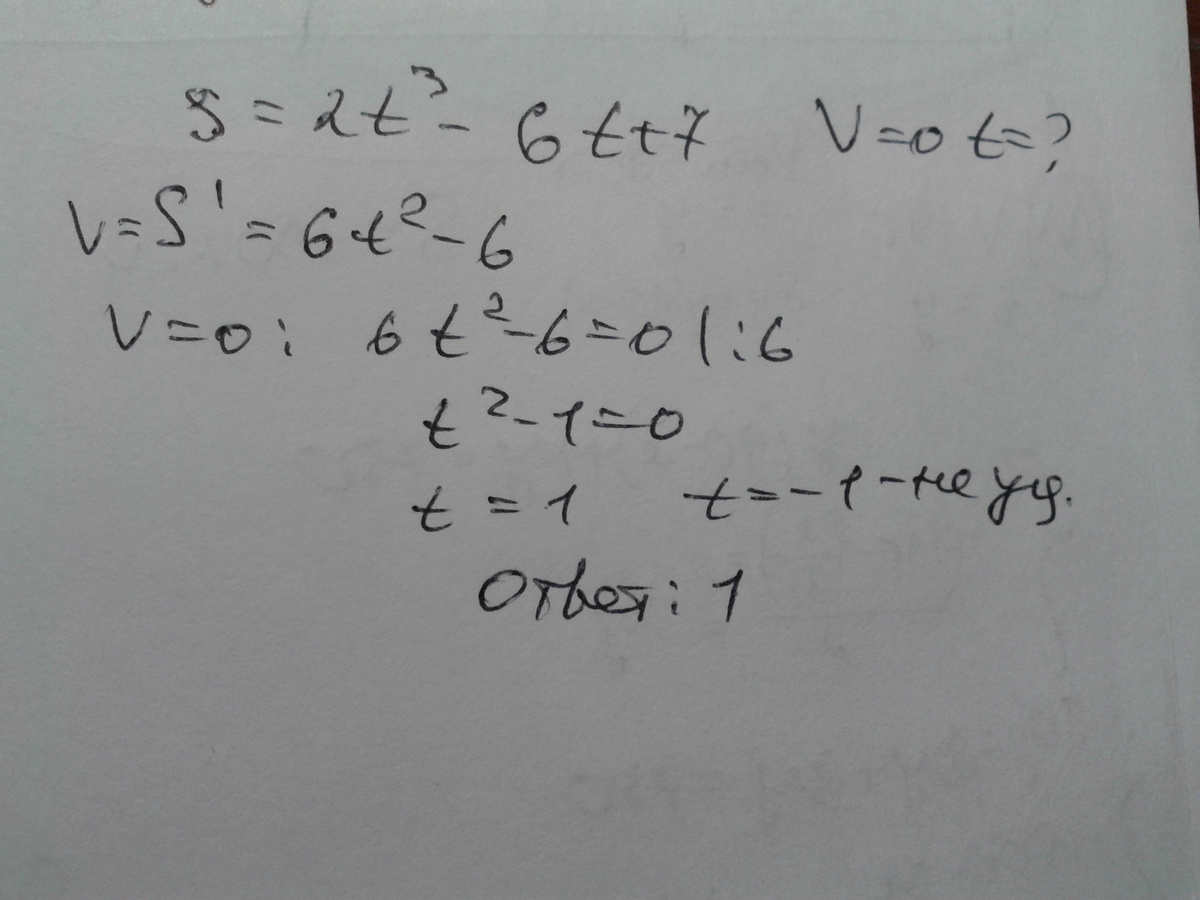 S = 2t³ - 6t+7 V=0 t=?
V=S' = 6t² - 6
V=0: 6t²-6=0 |:6
t²-1=0
t = 1 t=-1 - не уд.
Ответ: 1